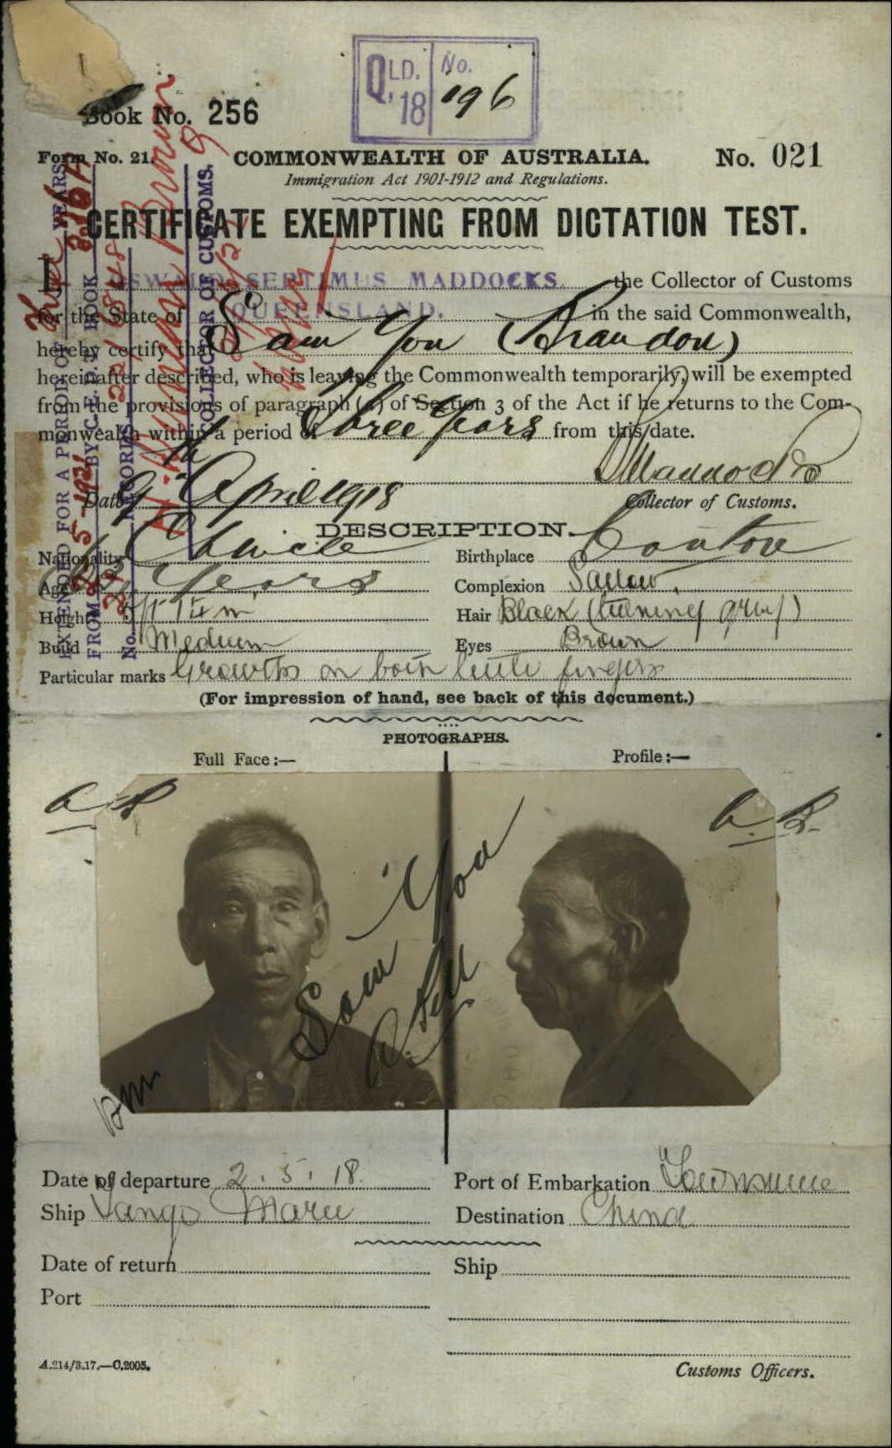 QLD. No.
'18 196
Book No. 256
Form No. 21. COMMONWEALTH OF AUSTRALIA. No. 021
Immigration Act 1901-1912 and Regulations.
CERTIFICATE EXEMPTING FROM DICTATION TEST.
I, OSWALD SEPTIMUS MADDOCKS the Collector of Customs
for the State of QUEENSLAND. in the said Commonwealth,
hereby certify that Sam You (Brandon)
hereinafter described, who is leaving the Commonwealth temporarily, will be exempted
from the provisions of paragraph (a) of Section 3 of the Act if he returns to the Com-
monwealth within a period of Three Years from this date.
Date 9th April 1918
Collector of Customs.
DESCRIPTION.
Nationality Birthplace Canton
Age Years Complexion Sallow
Height Hair Black (turning grey)
Build Medium Eyes Brown
Particular marks Growths on both little fingers
(For impression of hand, see back of this document.)
PHOTOGRAPHS.
Full Face :— Profile :—
Sam You
Date of departure 2.5.18. Port of Embarkation Townsville
Ship Tango Maru Destination China
Date of return Ship
Port
A.214/3.17.—C.2005.
Customs Officers.
EXTENDED FOR A PERIOD OF Three YEARS
FROM BY C.E.D.T. BOOK
No. RECORDS
COLLECTOR OF CUSTOMS.